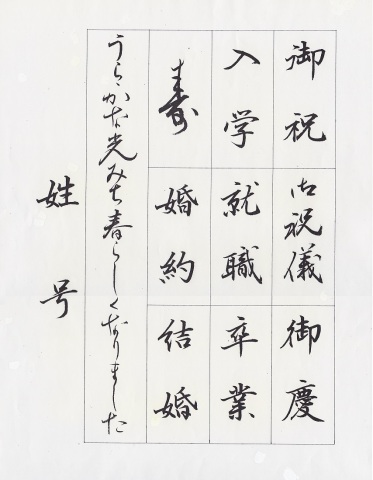 御祝 御祝儀 御慶
入学 就職 卒業
寿 婚約 結婚
うららかな光みち春らしくなりました
姓号